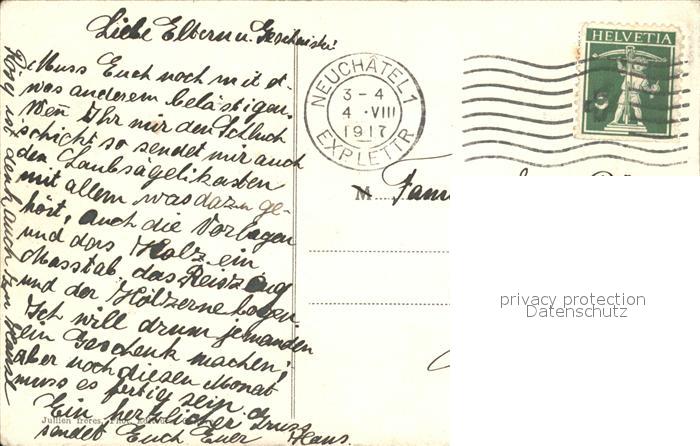 Liebe Eltern u. Geschwister!
Muss Euch noch mit et-
was anderem belästigen.
Wen̄ Ihr mir den Schluch
schickt so sendet mir auch
den Laubsägelikasten
mit allem was dazu ge-
hört, auch die Vorlagen
und das Holz ein
Masstab das Reiszeug
und der Hölzerne bogen
Ich will drum jemanden
ein Geschenk machen!
Aber noch diesen Monat
muss es fertig sein.
Ein herzlicher Gruss
sendet Euch Euer Hans.
ist denk auch
NEUCHATEL 1
3-4
4 . VIII
1917
EXP. LETTR
HELVETIA
M
Fam
Jullien frères, Phot. Editeurs
privacy protection
Datenschutz